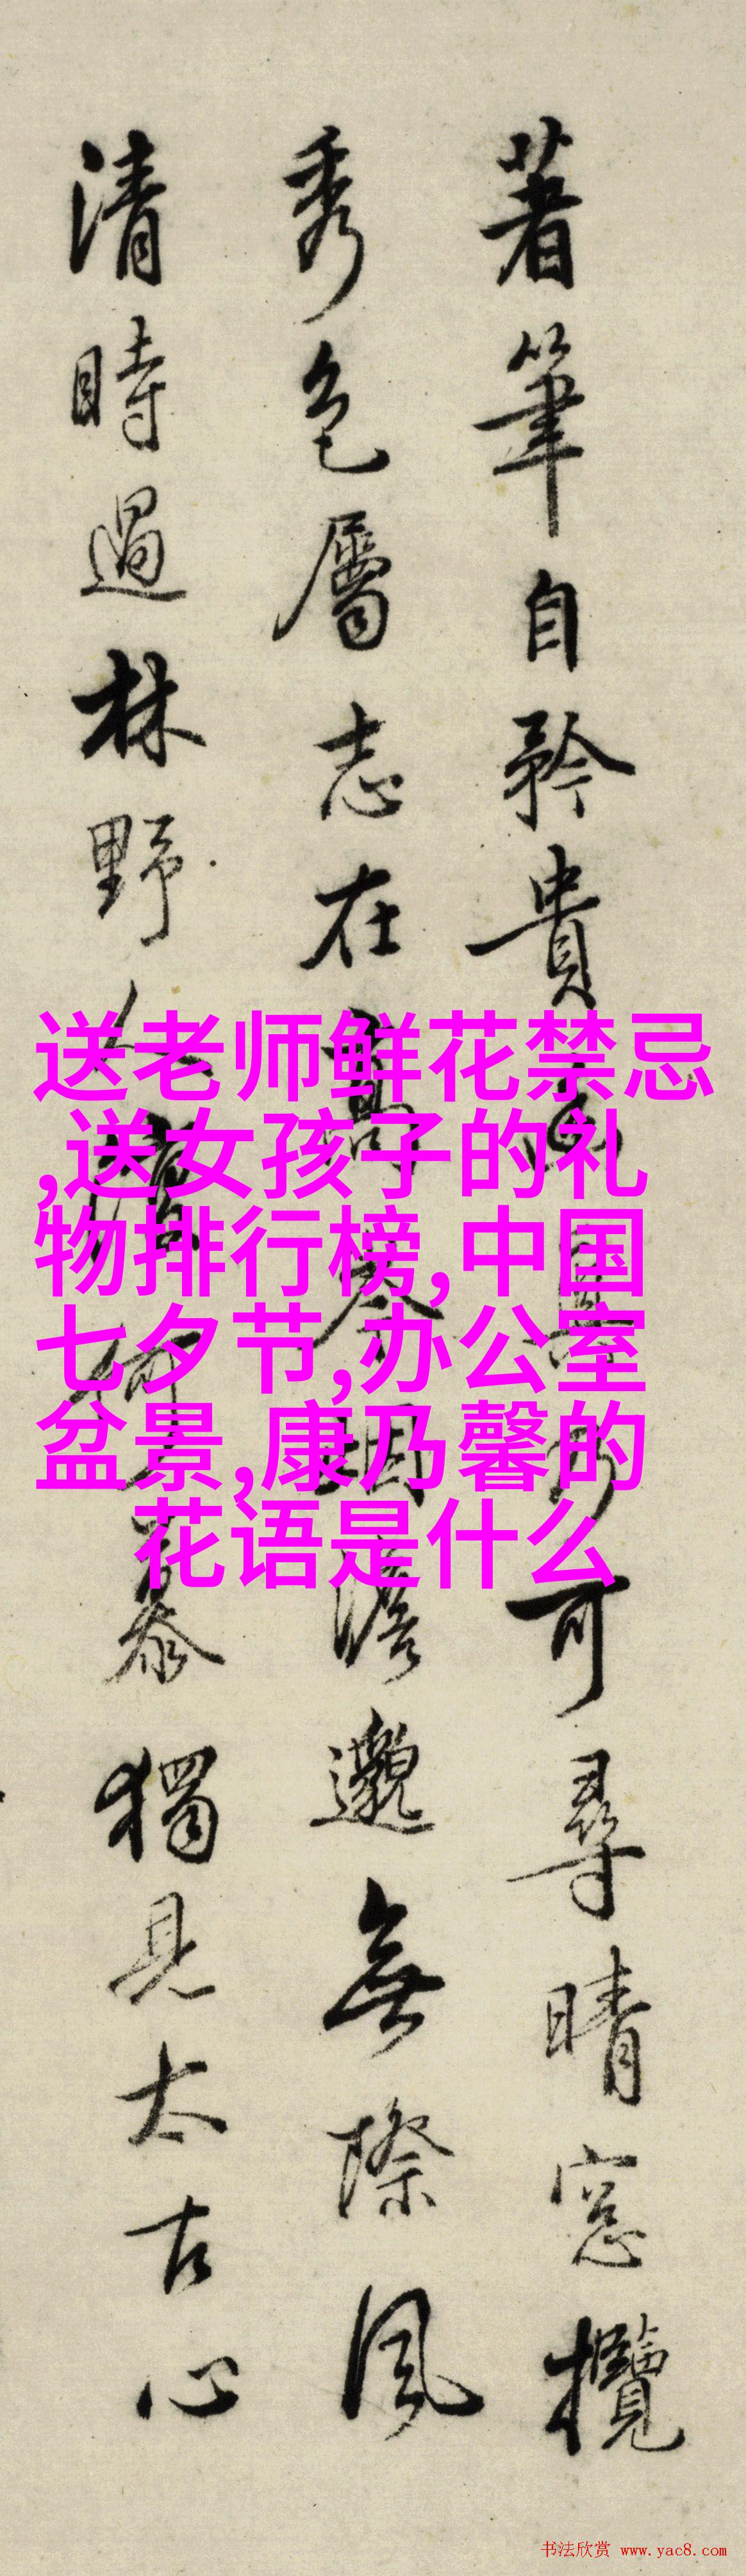 著筆自矜貴可尋晴窓攬
秀色屬志在高澹邈無際風
清時過林野人暮獨見太古心
送老师鲜花禁忌
,送女孩子的礼
物排行榜,中国
七夕节,办公室
盆景,康乃馨的
花语是什么
书法欣赏 www.yac8.com